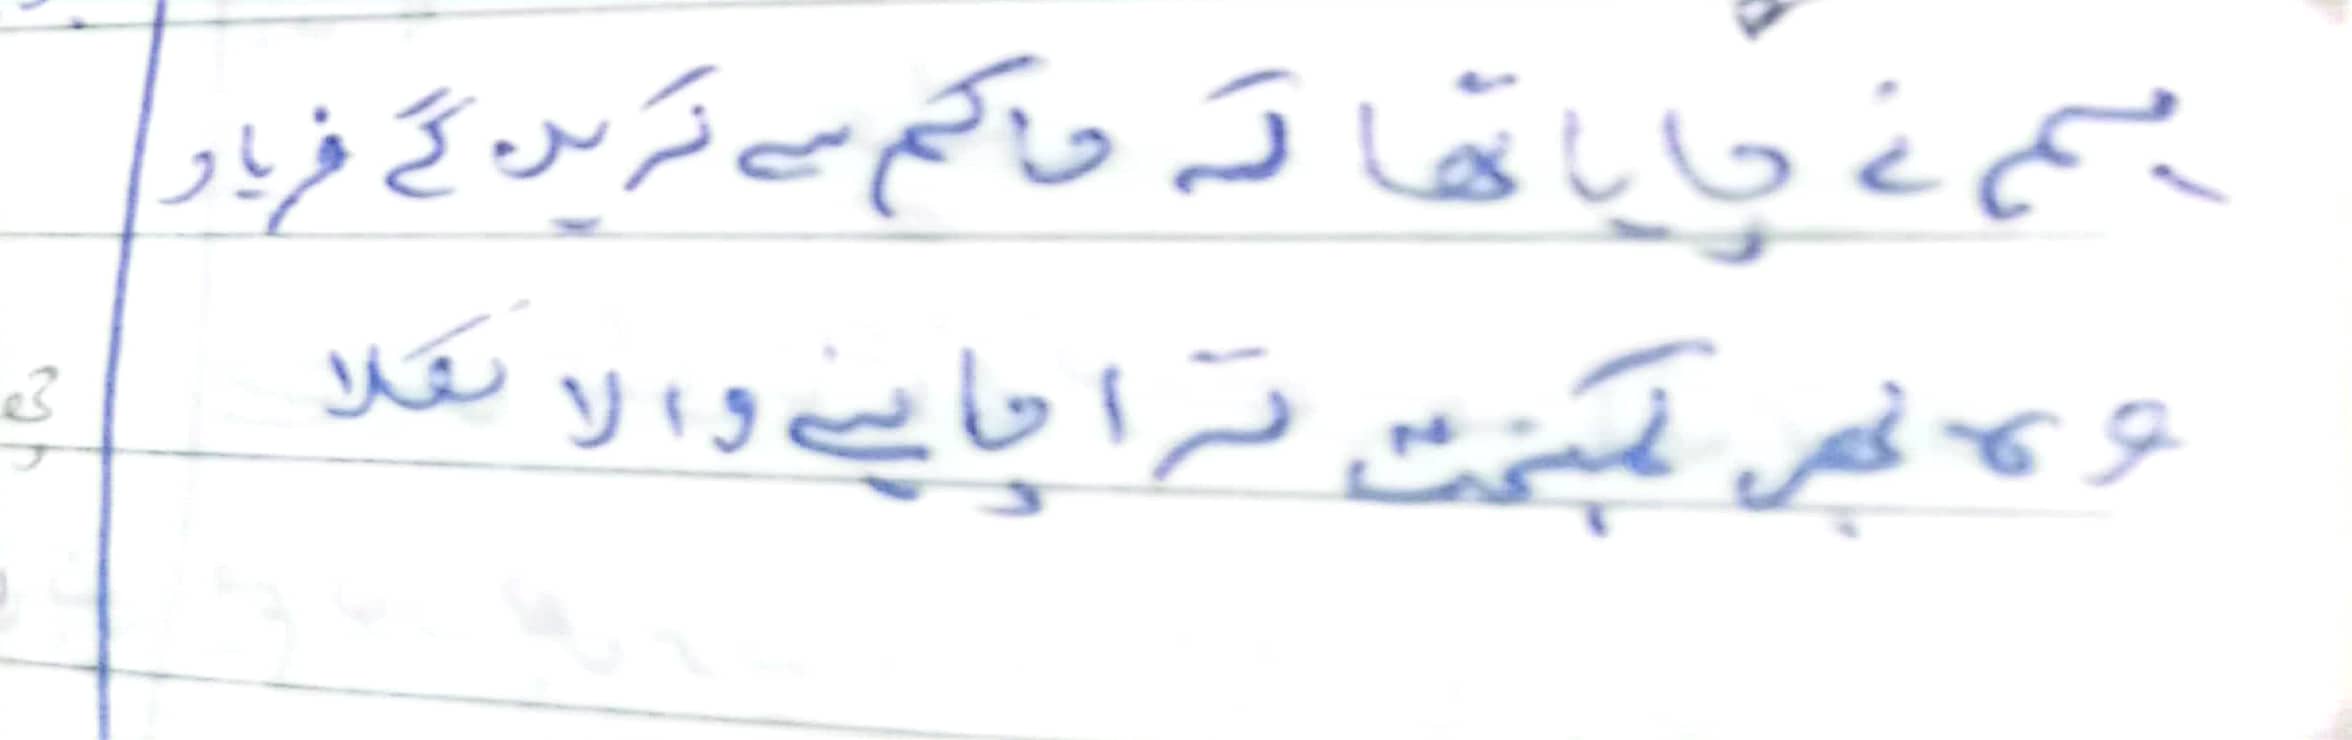 ہم نے چاہا تھا کہ حاکم سے کریں گے فریاد
وہ بھی کمبخت ترا چاہنے والا نکلا